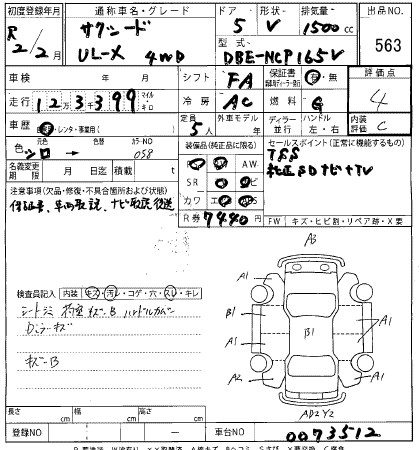 初度登録年月 通称車名・グレード ドア 形状 排気量 出品NO
R 2/2月 サクシード UL-X 4WD 5 V 1500cc 563
型式 DBE-NCP165V
車検 年 月 シフト FA 保証書 有・無 評価点 4
走行 12万3千399 マイル キロ 冷房 AC 燃料 G
車歴 自家用・レンタ・事業用( ) 定員 5人 外車モデル 年 ディーラー 並行 ハンドル 左・右 内装評価 C
色 元色 シロ 色替 カラーNO 058
装備品(純正品に限る) セールスポイント(正常に機能するもの)
AW TSS
名義変更期限 月 日迄 積載 kg SR 純正SDナビ+TV
注意事項(欠品・修復・不具合箇所および状態) カワ
保証書、車両取説、ナビ取説後送 R券 7440円 FW キズ・ヒビ割・リペア跡・X要
A3
検査員記入 内装 キズ・汚レ・コゲ・穴・スレ・キレ
A1 A1
シートシミ 荷室キズ-B ハンドルカバー
Dミラーキズ
B1 B1 A1
A1
キズ-B
A2 A1
AD2Y2
長さ cm 幅 cm 高さ cm
登録NO 車台NO 0073512